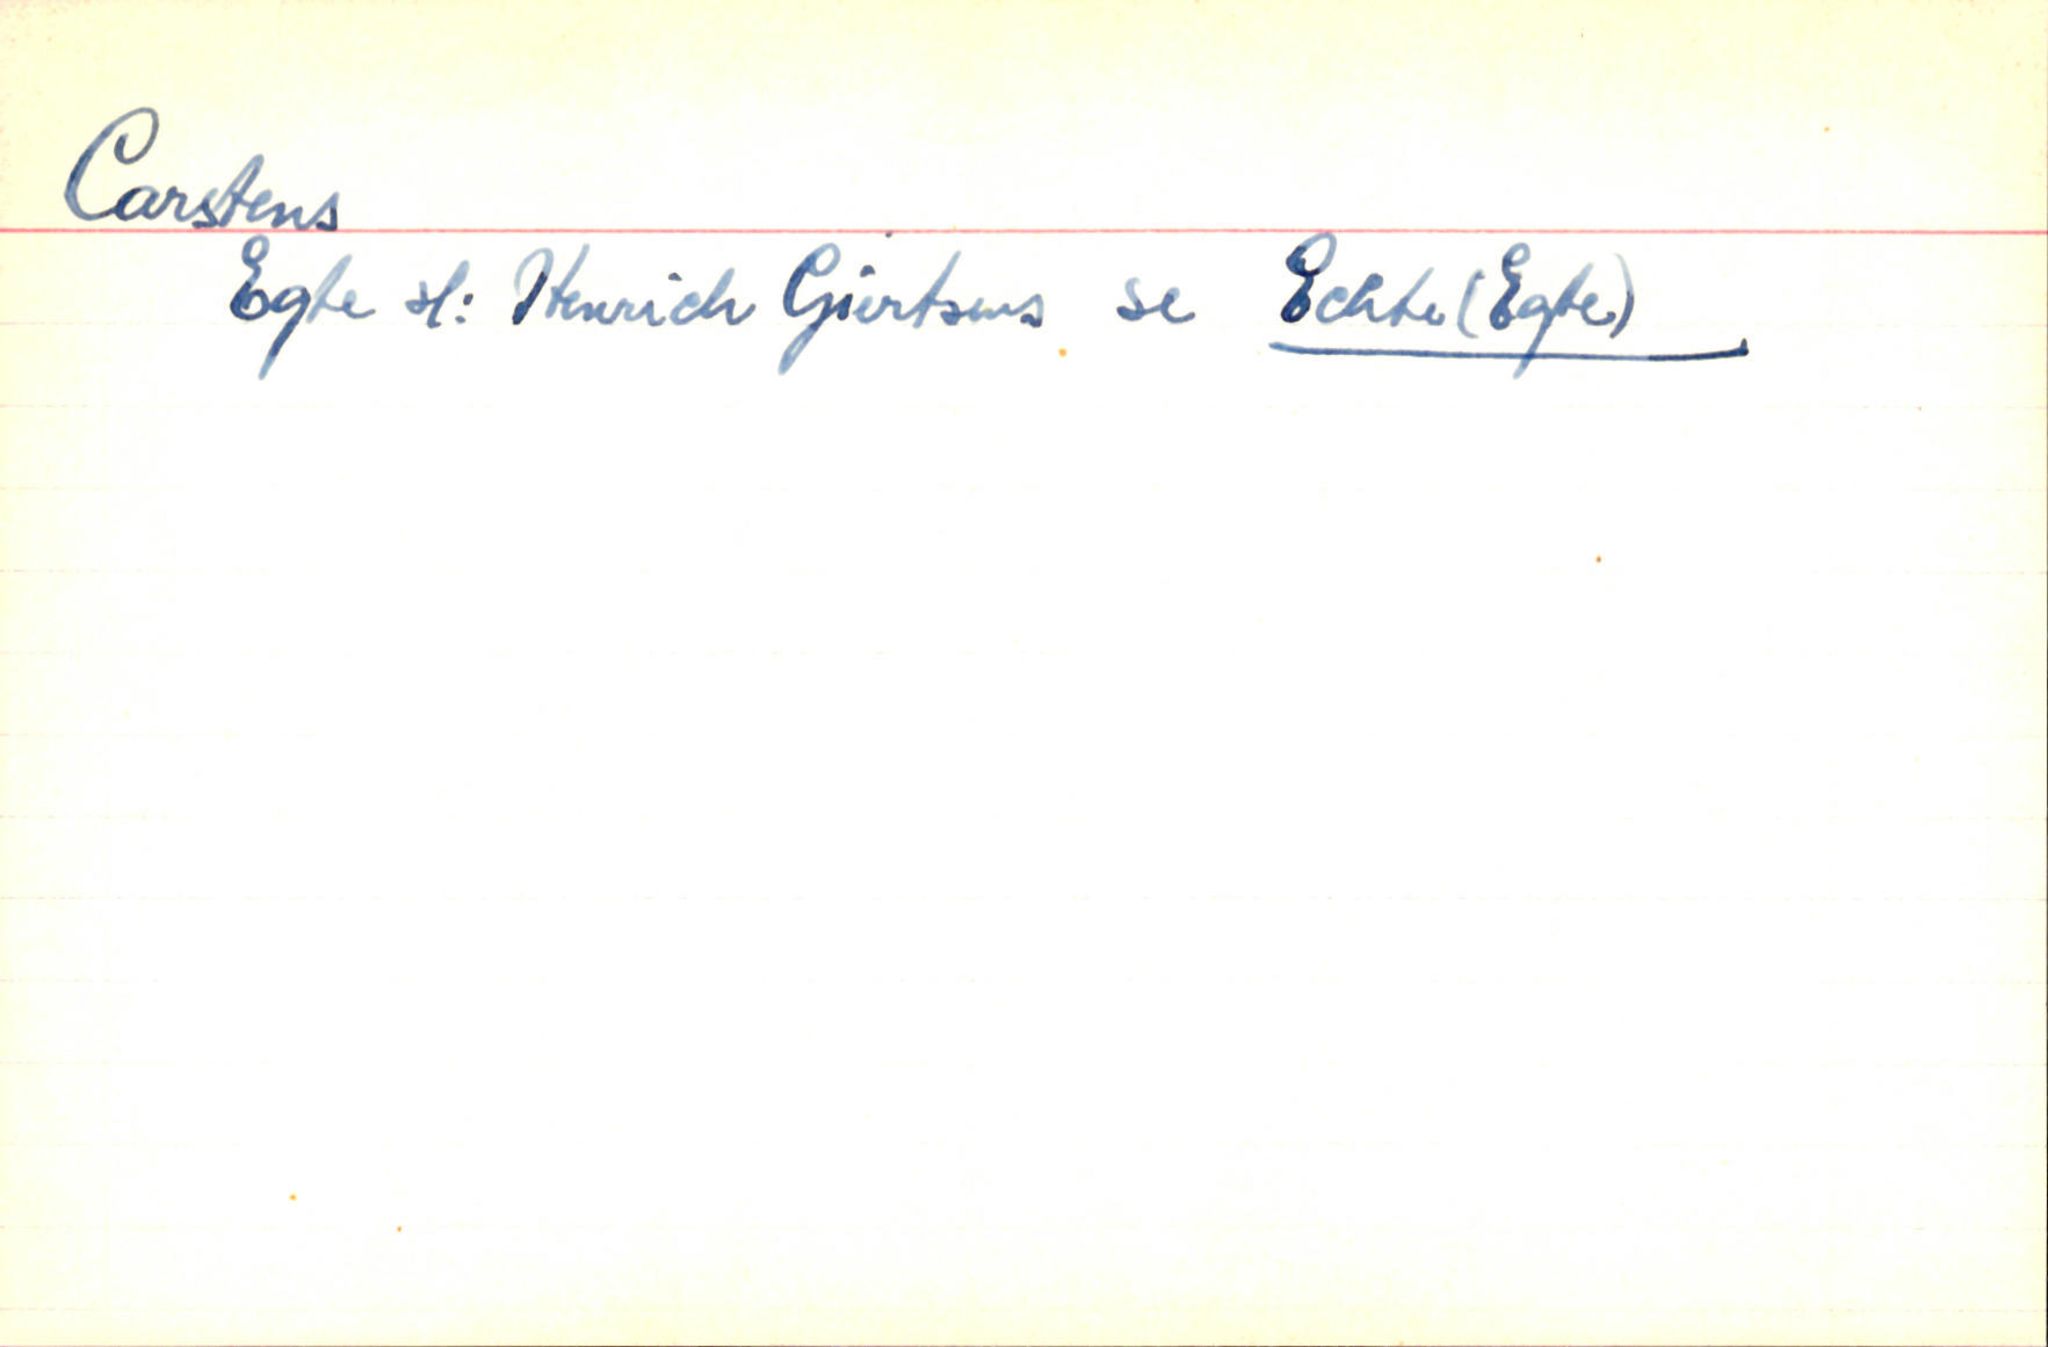 Carstens
Egte sl: Henrich Giertsens se Echte (Egte)